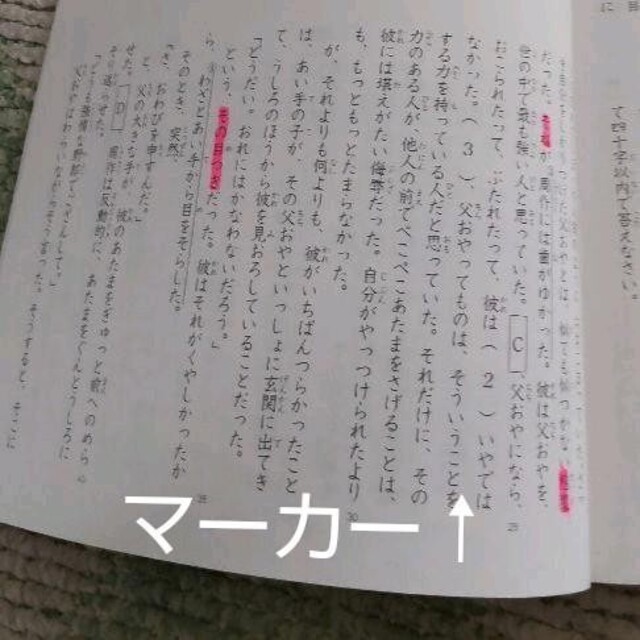 だった。それが、庸作には歯がゆかった。彼は父おやを、
世の中で最も強い人と思っていた。 C 父おやになら、
おこられたって、ぶたれたって、彼は（ 2 ）いやでは
なかった。（ 3 ）、父おやってものは、そういうことを
する力を持っている人だと思っていた。それだけに、その
力のある人が、他人の前でぺこぺこあたまをさげることは、
彼には堪えがたい侮辱だった。自分がやっつけられたより
も、もっともっとたまらなかった。
が、それよりも何よりも、彼がいちばんつらかったこと
は、あい手の子が、その父おやといっしょに玄関に出てき
て、うしろのほうから彼を見おろしていることだった。
「どうだい。おれにはかなわないだろう。」
という、その目つきだった。彼はそれがくやしかったか
ら、わざとあい手から目をそらした。
そのとき、突然、
「さ、おわびを申すんだ。」
と、父の大きな手が、彼のあたまをぎゅっと前へのめら
せた。 D 庸作は反動的に、あたまをぐんとうしろに
て四十字以内で答えなさい。
マーカー↑
25
30
35